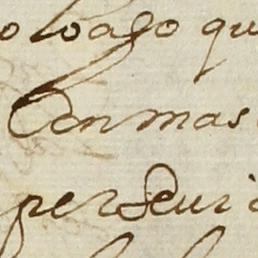 o lo ago qu
Con mas
perseui